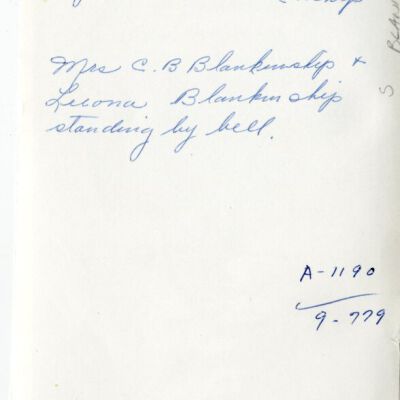 Mrs C. B Blankinship +
Leeona Blankinship
standing by bell.
A-1190
9-779